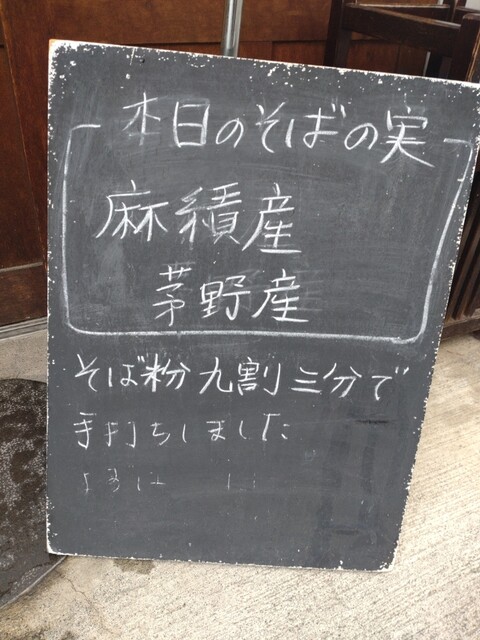 本日のそばの実
麻績産
茅野産
そば粉九割三分で
手打ちしました